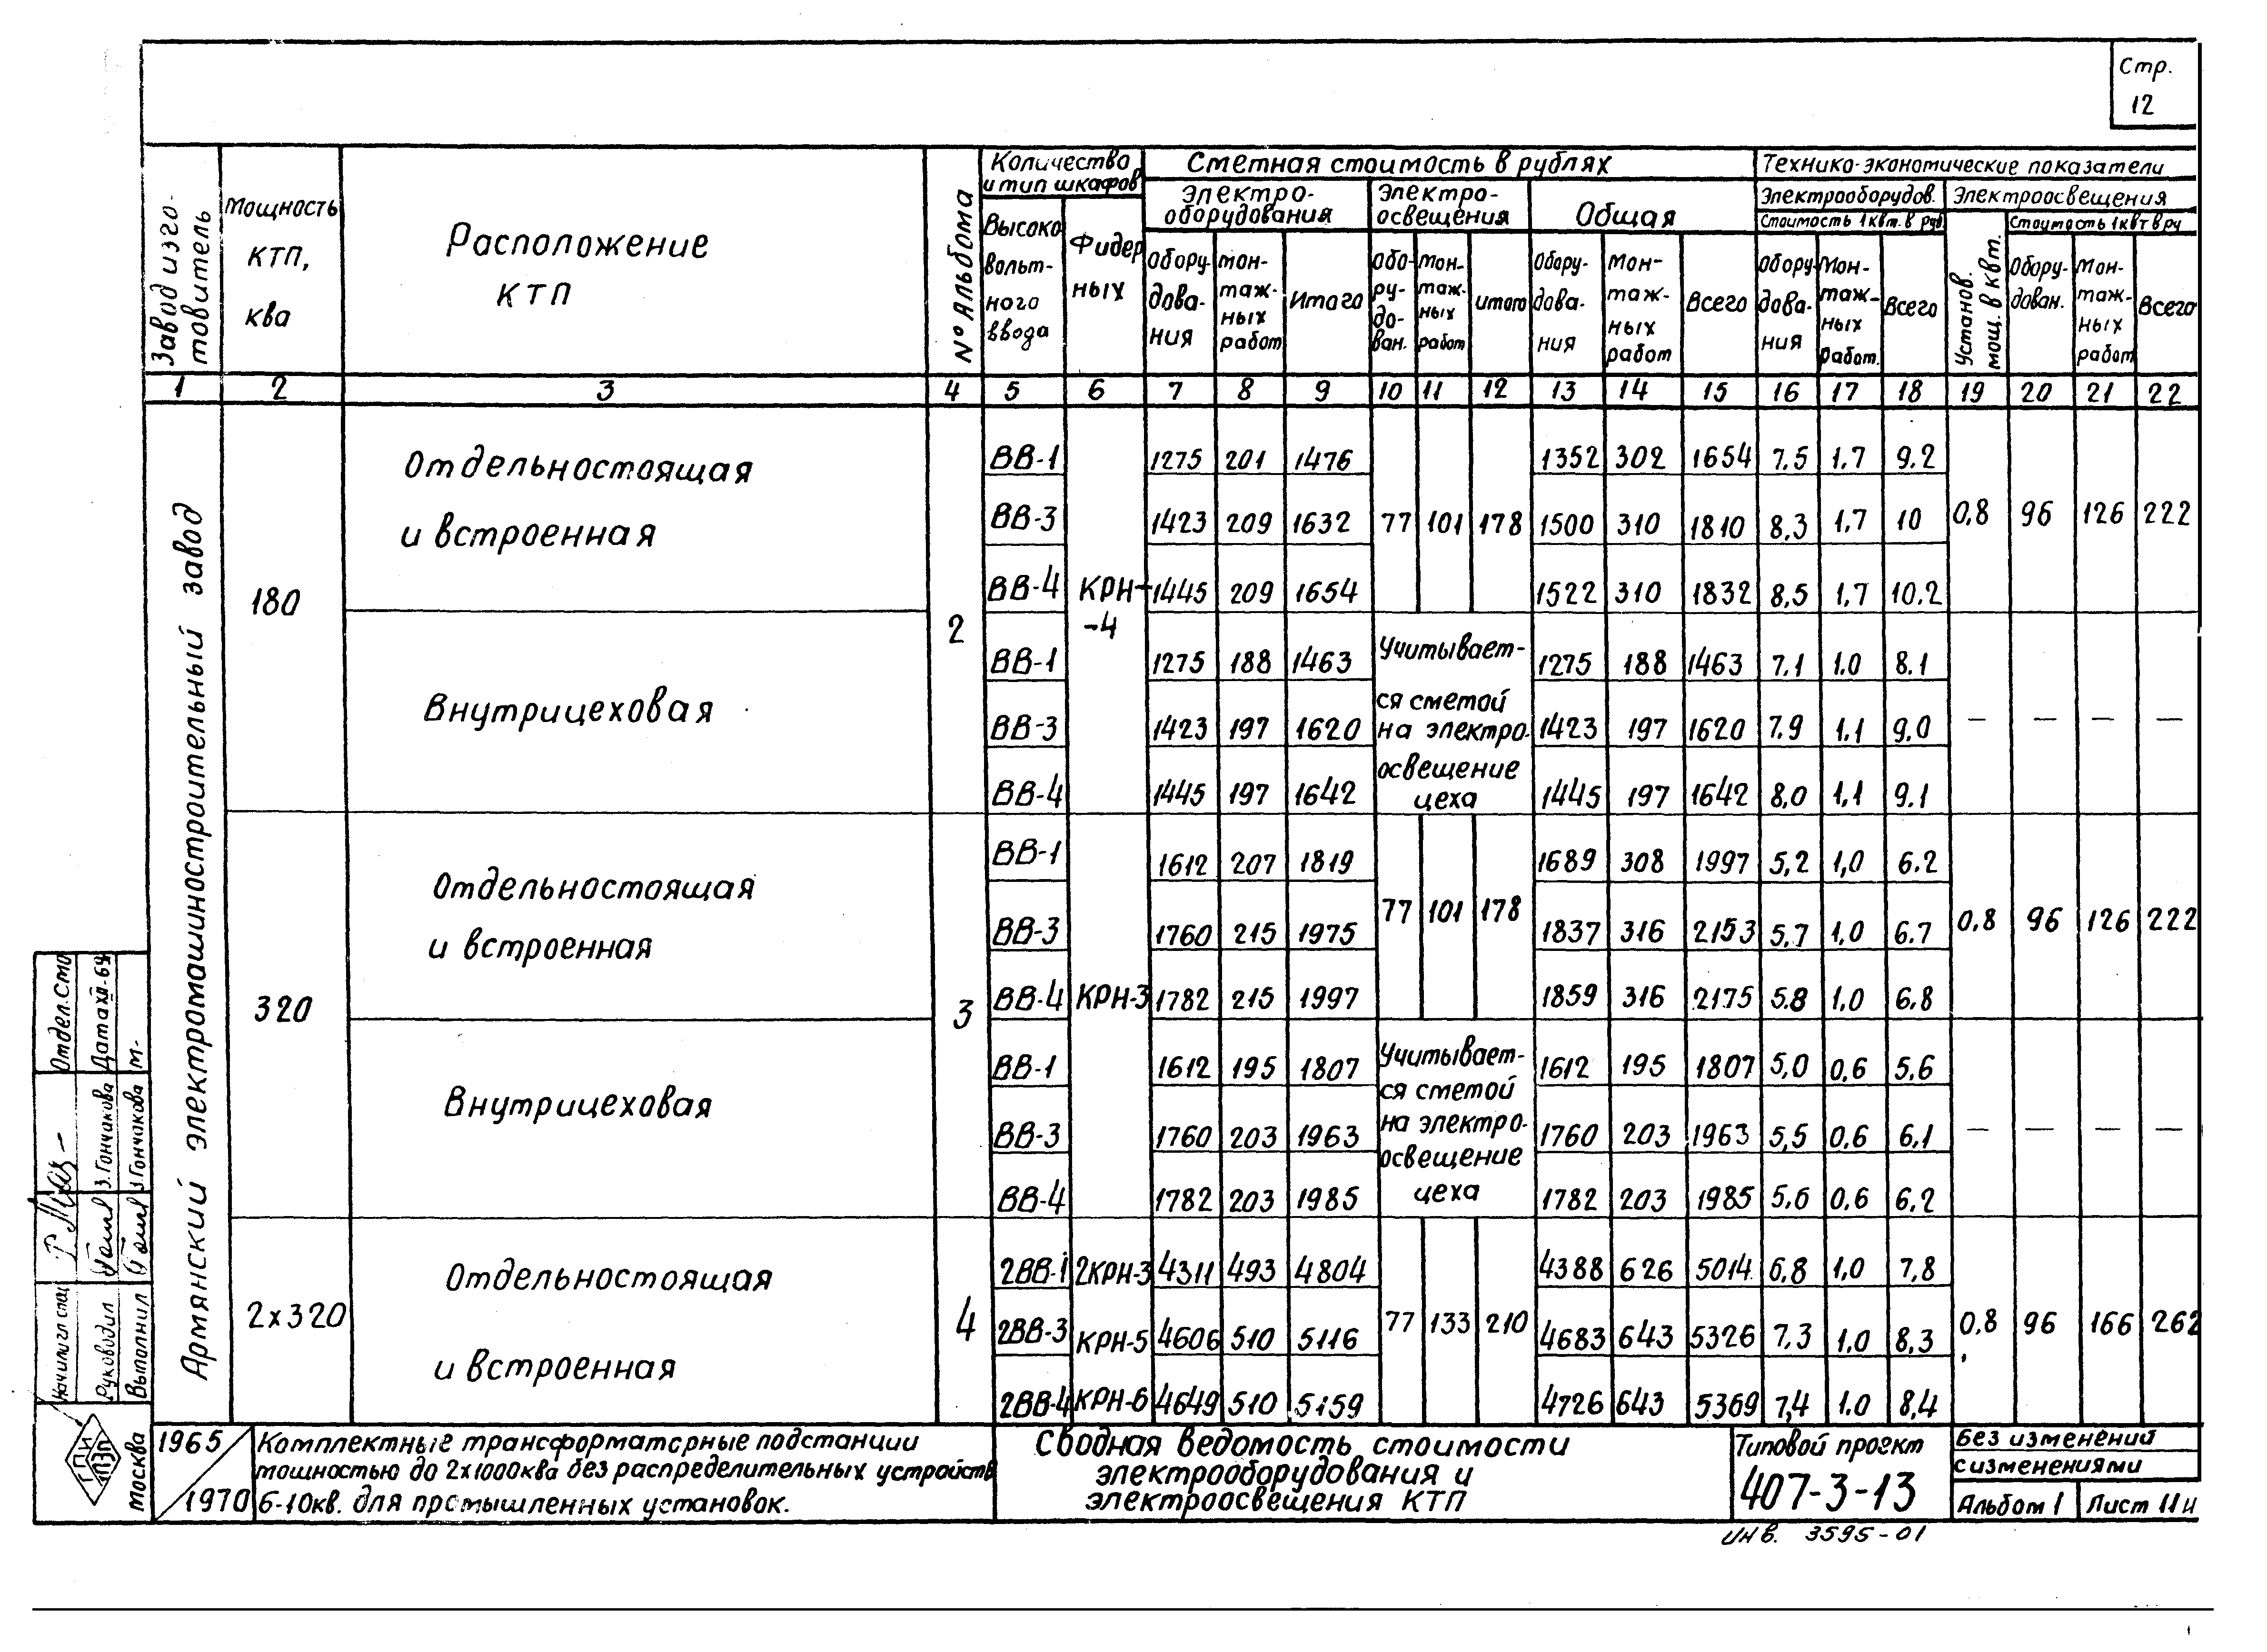 Стр.
12
Завод изго-
товитель
Мощность
КТП,
ква
Расположение
КТП
N° Альбома
Количества
и тип шкафов
Высоко
вольт-
ного
ввода
Фидер
ных
Сметная стоимость в рублях
Электро-
оборудования
Электро-
освещения
Общая
Обору-
дова-
ния
Мон-
таж-
ных
работ
Итого
Обо-
ру-
до-
ван.
Мон-
таж-
ных
работ
итого
Обору-
дова-
ния
Мон-
таж-
ных
работ
Всего
Технико-экономические показатели
Электрооборудов.
Электроосвещения
Стоимость 1 квт. в руб.
Стоимость 1 квт в ру
Обору
дова-
ния
Мон-
таж-
ных
работ.
Всего
Установ.
мощ. в квт.
Обору-
дован.
Мон-
таж-
ных
работ
Всего
1 2 3 4 5 6 7 8 9 10 11 12 13 14 15 16 17 18 19 20 21 22
Армянский электромашиностроительный завод
180
Отдельностоящая
и встроенная
2
КРН-
-4
ВВ-1 1275 201 1476 1352 302 1654 7.5 1.7 9.2
ВВ-3 1423 209 1632 77 101 178 1500 310 1810 8,3 1,7 10 0,8 96 126 222
ВВ-4 1445 209 1654 1522 310 1832 8,5 1,7 10.2
Внутрицеховая
Учитывает-
ся сметой
на электро-
освещение
цеха
ВВ-1 1275 188 1463 1275 188 1463 7.1 1.0 8.1
ВВ-3 1423 197 1620 1423 197 1620 7.9 1.1 9.0 — — — —
ВВ-4 1445 197 1642 1445 197 1642 8,0 1,1 9.1
320
Отдельностоящая
и встроенная
3
КРН-3
ВВ-1 1612 207 1819 1689 308 1997 5,2 1,0 6.2
ВВ-3 1760 215 1975 77 101 178 1837 316 2153 5,7 1,0 6.7 0,8 96 126 222
ВВ-4 1782 215 1997 1859 316 2175 5.8 1,0 6,8
Внутрицеховая
Учитывает-
ся сметой
на электро-
освещение
цеха
ВВ-1 1612 195 1807 1612 195 1807 5,0 0,6 5.6
ВВ-3 1760 203 1963 1760 203 1963 5,5 0,6 6,1 — — — —
ВВ-4 1782 203 1985 1782 203 1985 5,6 0,6 6,2
2х320
Отдельностоящая
и встроенная
4
2ВВ-1 2КРН-3 4311 493 4804 4388 626 5014 6,8 1,0 7,8
2ВВ-3 КРН-5 4606 510 5116 77 133 210 4683 643 5326 7,3 1,0 8,3 0,8 96 166 262
2ВВ-4 КРН-6 4649 510 5159 4726 643 5369 7,4 1.0 8,4
Отдел.
Дата
М-
З.Гончакова
З.Гончакова
Руководил
Выполнил
ГПИ
Москва
1965
1970
Комплектные трансформаторные подстанции
мощностью до 2х1000ква без распределительных устройств
6-10кв. для промышленных установок.
Сводная ведомость стоимости
электрооборудования и
электроосвещения КТП
Типовой проект
407-3-13
без изменений
с изменениями
Альбом 1
Лист 11ц
инв. 3595-01